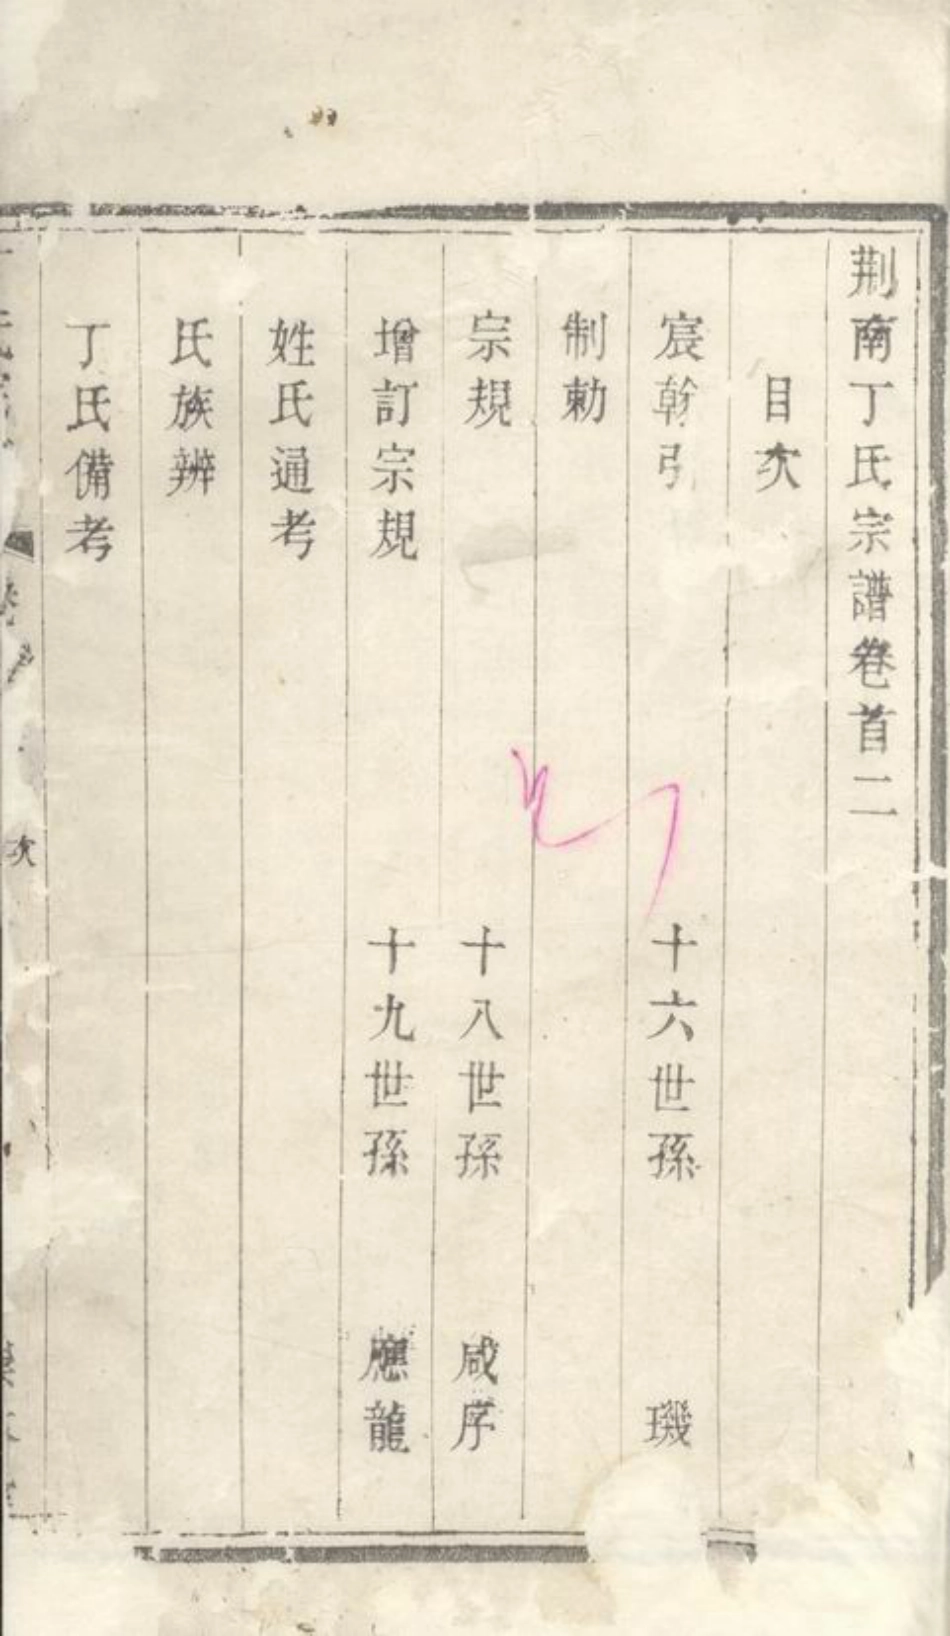 荆南丁氏宗譜卷首二
目次
宸翰引 十六世孫 璣
制勅
宗規 十八世孫 咸序
增訂宗規 十九世孫 應龍
姓氏通考
氏族辨
丁氏備考
次